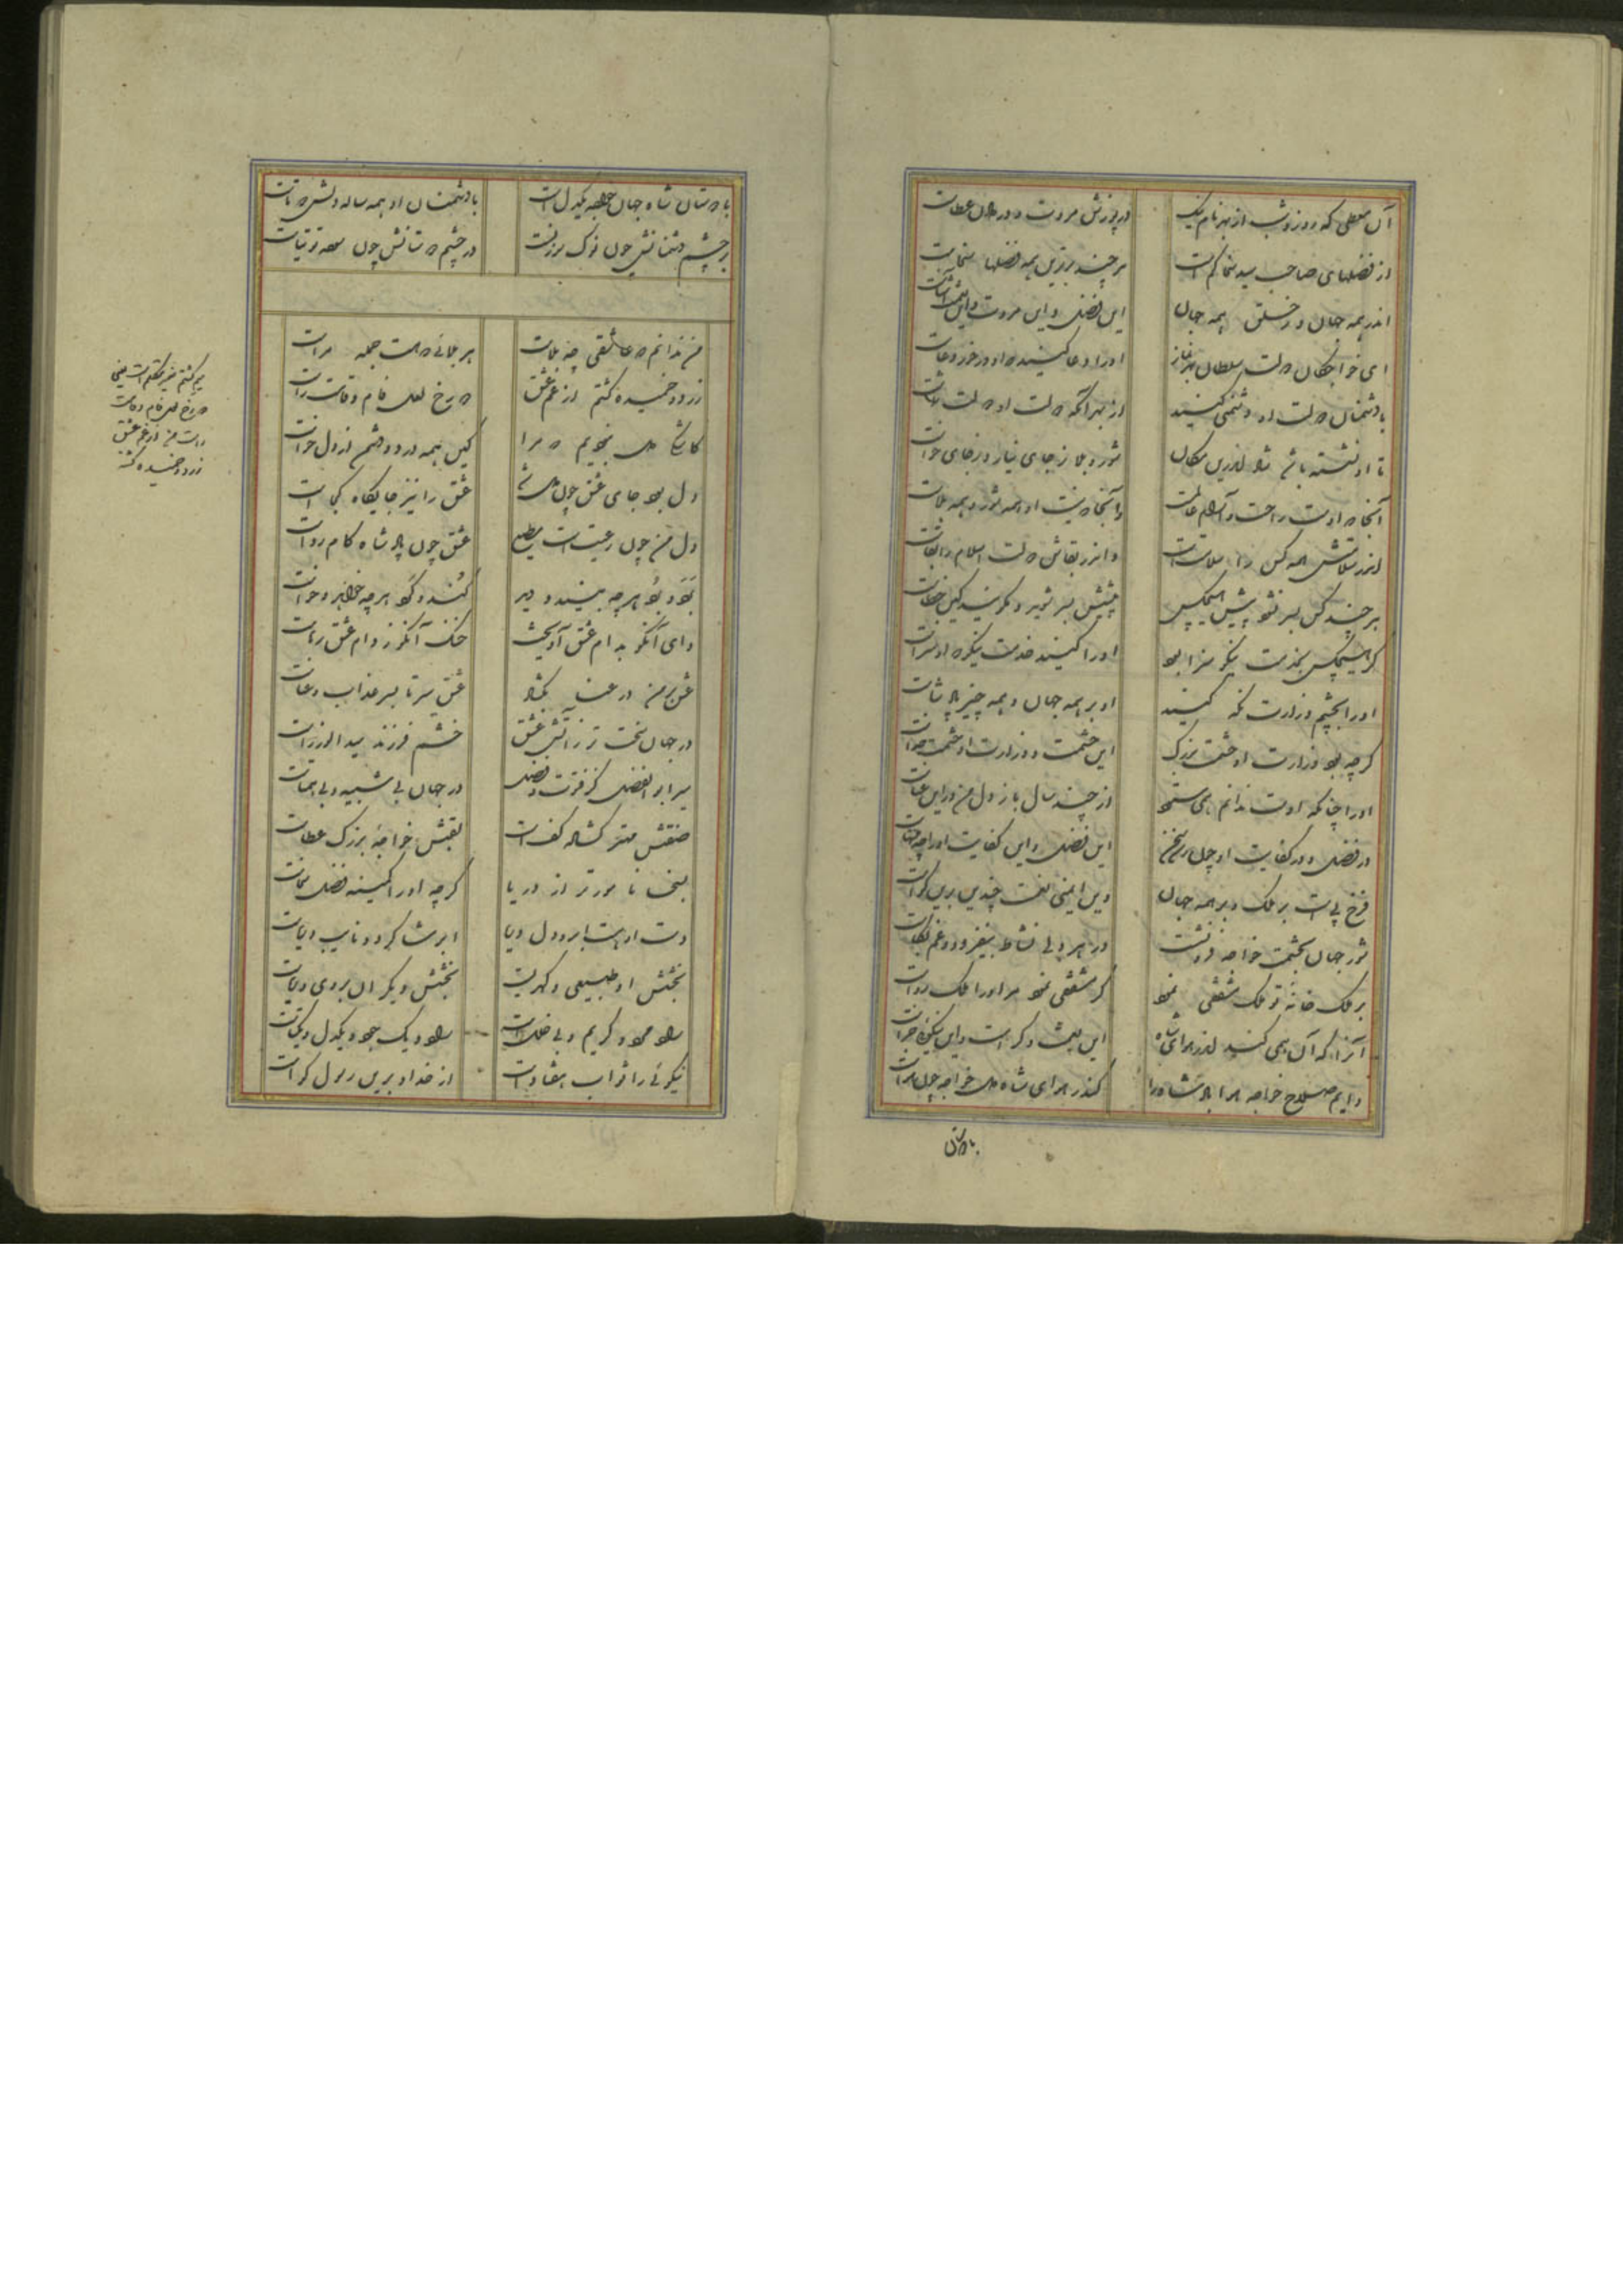 آن معطی که روز و شب از بهر نام نیک در پوزش مروت و در دادن عطاست
از فضلهای صاحب سید سخا کم است هر چند برترین همه فضلها سخاست
اندر همه جهان و ز خلق همه جهان این فضل و این مروت و این
ای خواجگان دولت سلطان بهر نماز او را دعا کنید که او درخور دعاست
با دشمنان دولت او دشمنی کنید از بهر آنکه دولت او دولت شماست
تا او نشسته باشد شاد اندرین مکان شور و بلا ز جای نیارد ز جای خواست
آنجا که اوست راحت و آرام عالمست وآنجا که نیست او همه شور و همه بلاست
اندر سلامتش همه کس را سلامتست و اندر بقاش دولت اسلام را بقاست
هر چند کس بسر نشود پیش هیچکس پیشش بسر شوید و مگویید کاین خطاست
گر هیچکس بخدمت نیکو سزا بود او را کنید خدمت نیکو که او سزاست
او را بچشم وزارت نگه کنید او بر همه جهان و همه چیز پادشاست
گرچه بود وزارت او حشمت بزرگ این حشمت و وزارت او حشمت
او را چنانکه اوست ندانم همی ستود از چند سال باز دل من در این عناست
در فضل و در کفایت او چون رسد سخن این فضل و این کفایت او را چه
فرخ پی است بر ملک و بر همه جهان وین ایمنی و نعمت چندین برین گواست
شور جهان بحشمت خواجه فرو نشست در هر دلی نشاط بیفزود و غم بکاست
بر ملک خانه تو ملک مشفقی نمود گر مشفقی نمود مر او را ملک رواست
آنرا که آن همی کند اندر سرای شاه این بیشتر ز کراست و این نیکوتر خراست
دایم صلاح خواجه مر این پادشاه را کندر سرای شاه ملک خواجه چون سزاست
بادوستان
با دوستان شاه جهان خواجه یکدل است با دشمنان او همه ساله دلش دوتاست
بر چشم دشمنانش چون نوک سوزنست در چشم دوستانش چون سوده توتیاست
من ندانم که عاشقی چه بلاست هر بلائی که هست جمله مراست
زرد و خمیده گشتم از غم عشق دو رخ لعل فام و قامت راست
کاشکی دل نبودیم که مرا کین همه درد و چشم از دل خواست
دل بود جای عشق چون دل شد عشق را نیز جایگاه کجاست
دل من چون رعیتیست مطیع عشق چون پادشاه کام رواست
برد و بود هرچه بیند و دید کند و کرد هرچه خواهد و خواست
وای آنکو بدام عشق آویخت خنک آنکو ز دام عشق رهاست
عشق بر من در عنا بگشاد عشق سر تا بسر عذاب و عناست
در جهان سخت تر ز آتش عشق خشم فرزند سید الوزراست
میر ابوالفضل کز فتوت و فضل در جهان بی شبیه و بی همتاست
صفتش مهتر گشاده کف است لقبش خواجه بزرگ عطاست
بسخا نامورتر از دریا گرچه او را کمینه فضل سخاست
دست او هست ابر و دل دریا ابر شاگرد و نایب دریاست
بخشش او طبیعی و گهریست بخشش دیگران بروی و ریاست
ساده و مهد و کریم و بی خللست ساده و یک جهد و یکدل و یکتاست
نیکوئی را ثواب هفتادست از خداوند برین رسول گواست
میم گشتم ضمیر متکلم است یعنی
دو رخ لعل فام و قامت
راست من از غم عشق
زرد و خمیده گشته